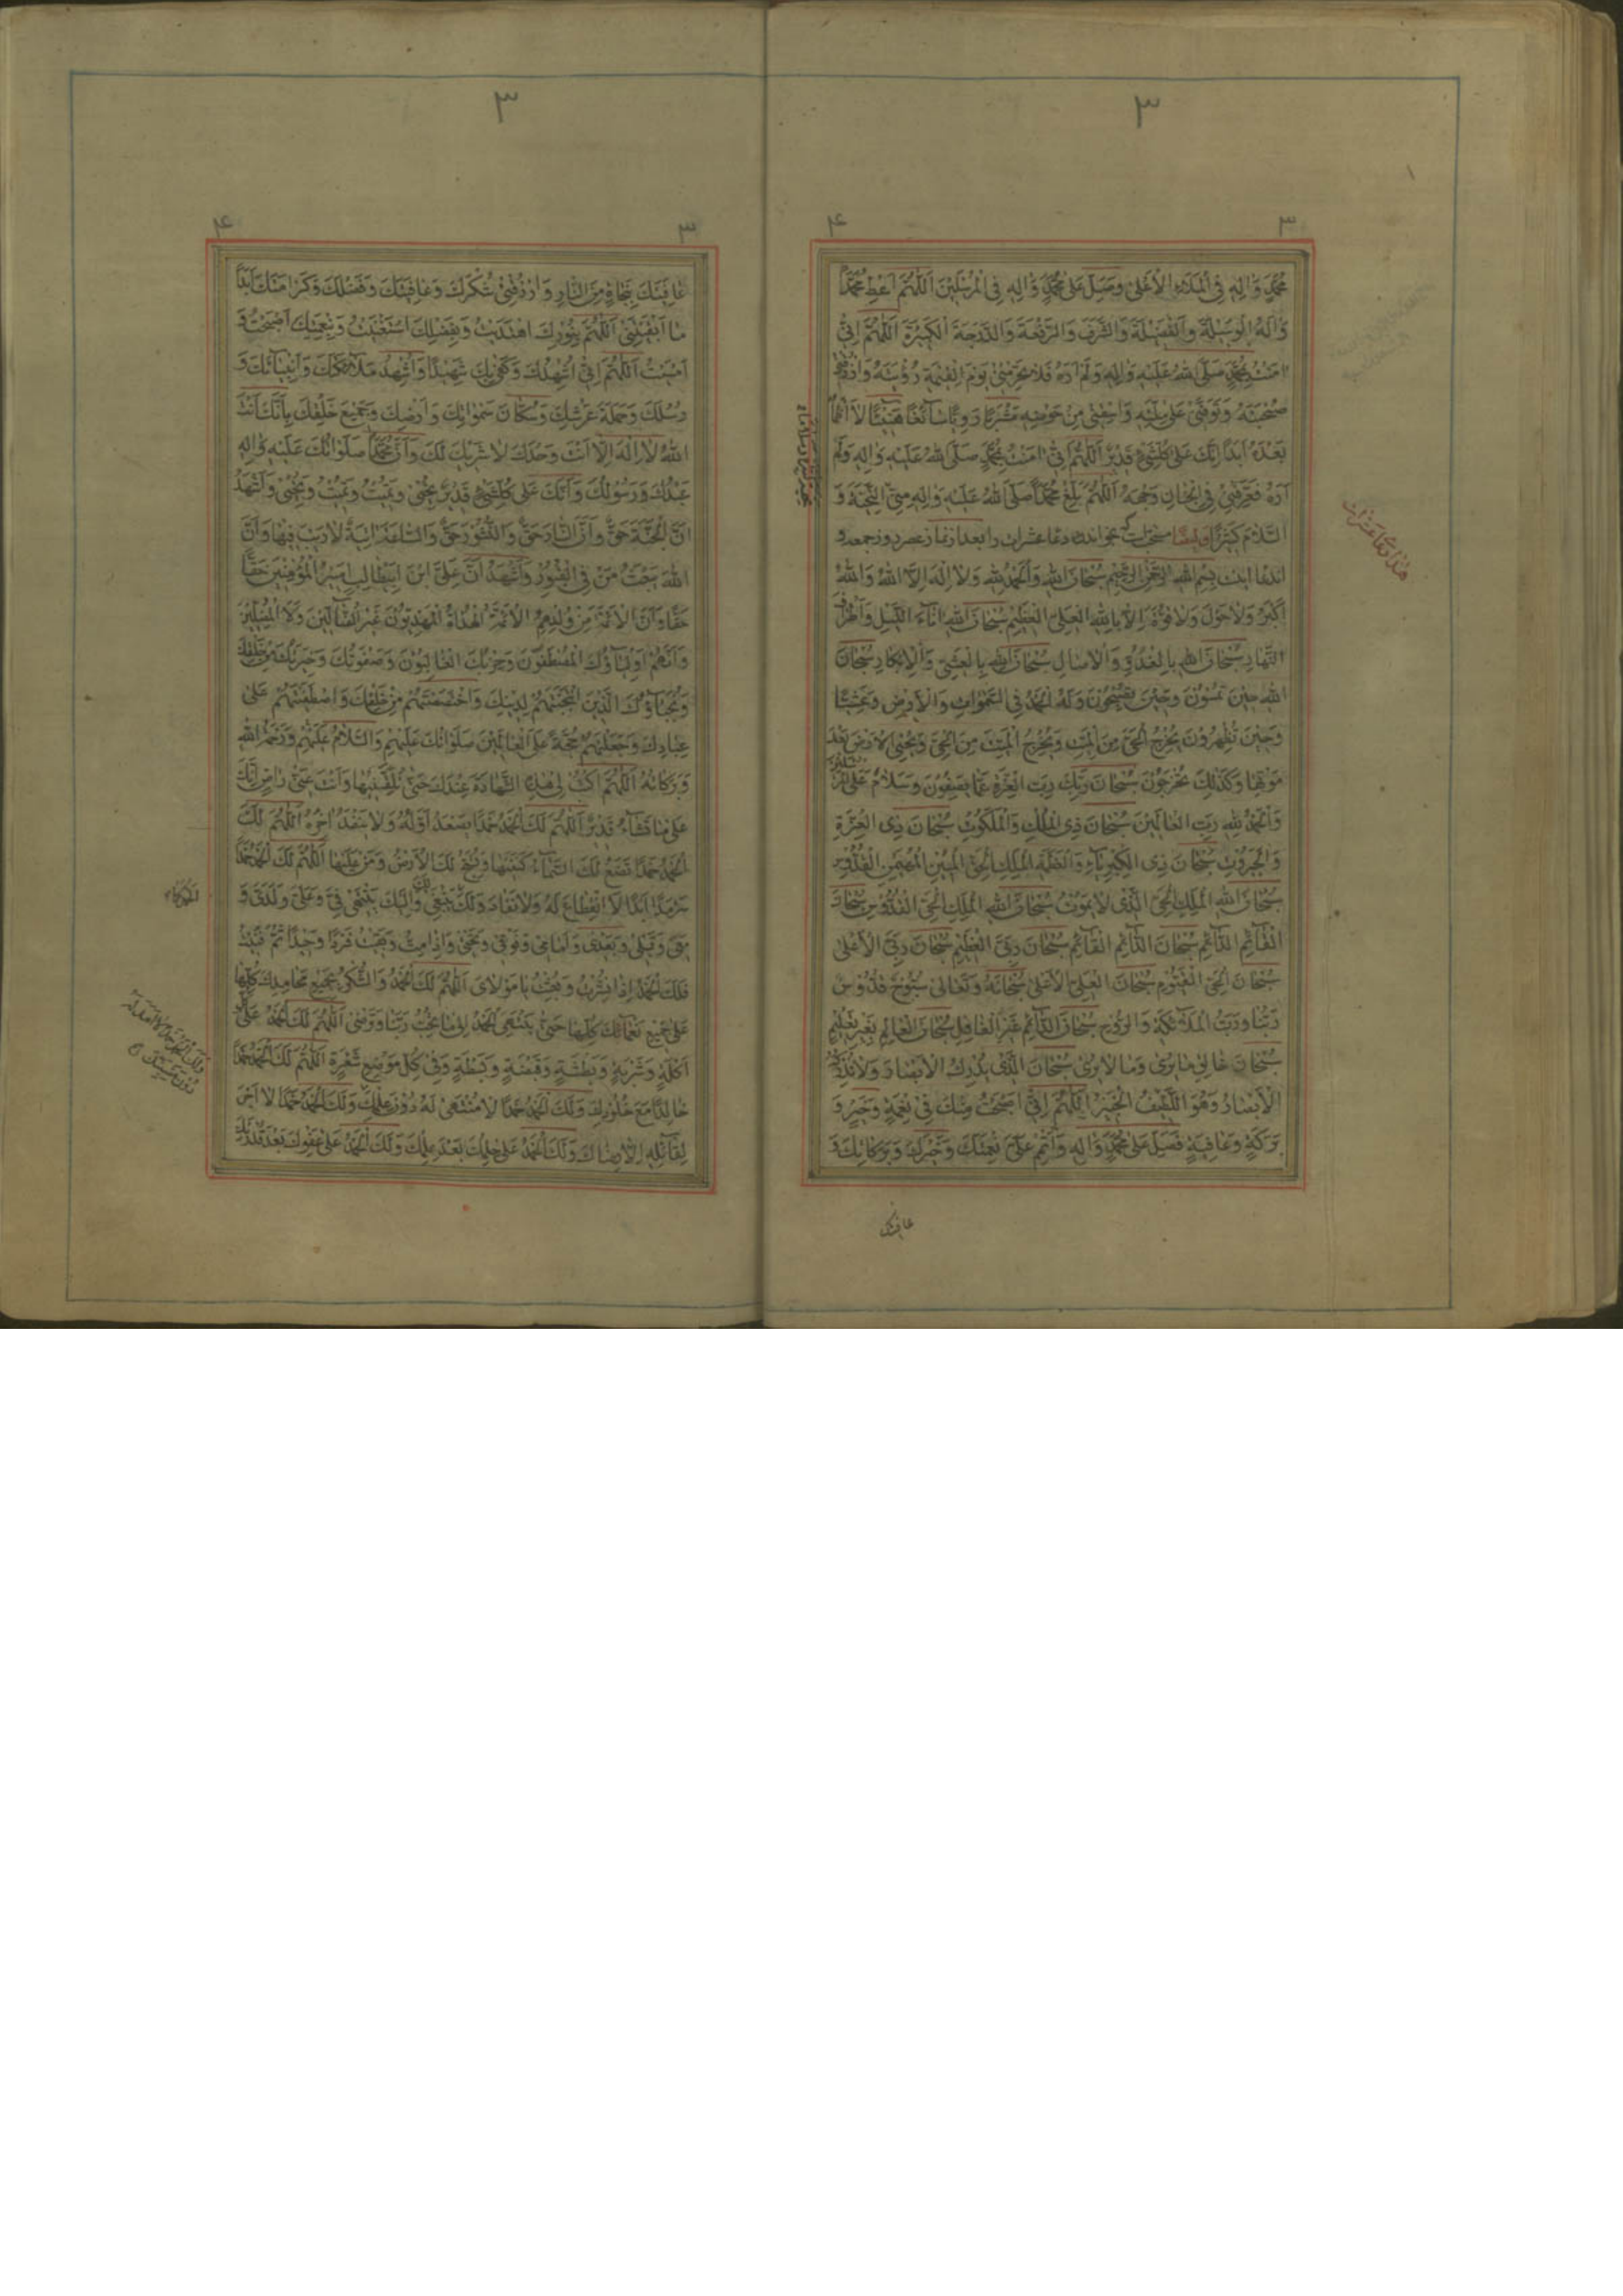 ٣
٣ ۴
مُحَمَّدٍ وَالِهِ فِي الْمَلَاءِ الْأَعْلىٰ وَصَلِّ عَلىٰ مُحَمَّدٍ وَالِهِ فِي الْمُرْسَلِينَ اَللّٰهُمَّ اَعْطِ مُحَمَّدًا
وَالَهُ الْوَسِيلَةَ وَالْفَضِيلَةَ وَالشَّرَفَ وَالرِّفْعَةَ وَالدَّرَجَةَ الْكَبِيرَةَ اَللّٰهُمَّ اِنِّي
امَنْتُ بِمُحَمَّدٍ صَلَّى اللهُ عَلَيْهِ وَالِهِ وَلَمْ اَرَهُ فَلَا تَحْرِمْنِي يَوْمَ الْقِيٰمَةِ رُؤْيَتَهُ وَارْزُقْنِي
صُحْبَتَهُ وَتَوَفَّنِي عَلىٰ مِلَّتِهِ وَاسْقِنِي مِنْ حَوْضِهِ مَشْرَبًا رَوِيًّا سَآئِغًا هَنِيئًا لَا اَظْمَأُ
بَعْدَهُ اَبَدًا اِنَّكَ عَلىٰ كُلِّ شَيْءٍ قَدِيرٌ اَللّٰهُمَّ اِنِّي امَنْتُ بِمُحَمَّدٍ صَلَّى اللهُ عَلَيْهِ وَالِهِ وَلَمْ
اَرَهُ فَعَرِّفْنِي فِي الْجِنَانِ وَجْهَهُ اَللّٰهُمَّ بَلِّغْ مُحَمَّدًا صَلَّى اللهُ عَلَيْهِ وَالِهِ مِنِّي التَّحِيَّةَ وَ
السَّلَامَ كَثِيرًا وَايضًا مستحبّ است كه بخواند دعاء عشرات را بعد از نماز عصر روز جمعه و
اندعا اينست بِسْمِ اللهِ الرَّحْمٰنِ الرَّحِيمِ سُبْحَانَ اللهِ وَالْحَمْدُ لِلّٰهِ وَلَا اِلٰهَ اِلَّا اللهُ وَاللهُ
اَكْبَرُ وَلَا حَوْلَ وَلَا قُوَّةَ اِلَّا بِاللهِ الْعَلِيِّ الْعَظِيمِ سُبْحَانَ اللهِ انَاءَ اللَّيْلِ وَاَطْرَافَ
النَّهَارِ سُبْحَانَ اللهِ بِالْغُدُوِّ وَالْاصَالِ سُبْحَانَ اللهِ بِالْعَشِيِّ وَالْاِبْكَارِ سُبْحَانَ
اللهِ حِينَ تُمْسُونَ وَحِينَ تُصْبِحُونَ وَلَهُ الْحَمْدُ فِي السَّمٰوَاتِ وَالْاَرْضِ وَعَشِيًّا
وَحِينَ تُظْهِرُونَ يُخْرِجُ الْحَيَّ مِنَ الْمَيِّتِ وَيُخْرِجُ الْمَيِّتَ مِنَ الْحَيِّ وَيُحْيِي الْاَرْضَ بَعْدَ
مَوْتِهَا وَكَذٰلِكَ تُخْرَجُونَ سُبْحَانَ رَبِّكَ رَبِّ الْعِزَّةِ عَمَّا يَصِفُونَ وَسَلَامٌ عَلَى الْمُرْسَلِينَ
وَالْحَمْدُ لِلّٰهِ رَبِّ الْعَالَمِينَ سُبْحَانَ ذِي الْمُلْكِ وَالْمَلَكُوتِ سُبْحَانَ ذِي الْعِزَّةِ
وَالْجَبَرُوتِ سُبْحَانَ ذِي الْكِبْرِيَآءِ وَالْعَظَمَةِ الْمَلِكِ الْحَقِّ الْمُبِينِ الْمُهَيْمِنِ الْقُدُّوسِ
سُبْحَانَ اللهِ الْمَلِكِ الْحَيِّ الَّذِي لَا يَمُوتُ سُبْحَانَ اللهِ الْمَلِكِ الْحَيِّ الْقُدُّوسِ سُبْحَانَ
الْقَآئِمِ الدَّآئِمِ سُبْحَانَ الدَّآئِمِ الْقَآئِمِ سُبْحَانَ رَبِّيَ الْعَظِيمِ سُبْحَانَ رَبِّيَ الْاَعْلىٰ
سُبْحَانَ الْحَيِّ الْقَيُّومِ سُبْحَانَ الْعَلِيِّ الْاَعْلىٰ سُبْحَانَهُ وَتَعَالىٰ سُبُّوحٌ قُدُّوسٌ
رَبُّنَا وَرَبُّ الْمَلَآئِكَةِ وَالرُّوحِ سُبْحَانَ الدَّآئِمِ غَيْرِ الْغَافِلِ سُبْحَانَ الْعَالِمِ بِغَيْرِ تَعْلِيمٍ
سُبْحَانَ خَالِقِ مَا يُرىٰ وَمَا لَا يُرىٰ سُبْحَانَ الَّذِي يُدْرِكُ الْاَبْصَارَ وَلَا تُدْرِكُهُ
الْاَبْصَارُ وَهُوَ اللَّطِيفُ الْخَبِيرُ اَللّٰهُمَّ اِنِّي اَصْبَحْتُ مِنْكَ فِي نِعْمَةٍ وَخَيْرٍ وَ
بَرَكَةٍ وَعَافِيَةٍ فَصَلِّ عَلىٰ مُحَمَّدٍ وَالِهِ وَاَتْمِمْ عَلَيَّ نِعْمَتَكَ وَخَيْرَكَ وَبَرَكَاتِكَ وَ
عافيتك
هذا دعاء عشرات
٣
٣ ۴
عَافِيَتَكَ بِنَجَاةٍ مِنَ النَّارِ وَارْزُقْنِي شُكْرَكَ وَعَافِيَتَكَ وَفَضْلَكَ وَكَرَامَتَكَ اَبَدًا
مَا اَبْقَيْتَنِي اَللّٰهُمَّ بِنُورِكَ اهْتَدَيْتُ وَبِفَضْلِكَ اسْتَغْنَيْتُ وَبِنِعْمَتِكَ اَصْبَحْتُ وَ
اَمْسَيْتُ اَللّٰهُمَّ اِنِّي اُشْهِدُكَ وَكَفىٰ بِكَ شَهِيدًا وَاُشْهِدُ مَلَآئِكَتَكَ وَاَنْبِيَآئَكَ وَ
رُسُلَكَ وَحَمَلَةَ عَرْشِكَ وَسُكَّانَ سَمٰوَاتِكَ وَاَرْضِكَ وَجَمِيعَ خَلْقِكَ بِاَنَّكَ اَنْتَ
اللهُ لَا اِلٰهَ اِلَّا اَنْتَ وَحْدَكَ لَا شَرِيكَ لَكَ وَاَنَّ مُحَمَّدًا صَلَوَاتُكَ عَلَيْهِ وَالِهِ
عَبْدُكَ وَرَسُولُكَ وَاَنَّكَ عَلىٰ كُلِّ شَيْءٍ قَدِيرٌ تُحْيِي وَتُمِيتُ وَتُمِيتُ وَتُحْيِي وَاَشْهَدُ
اَنَّ الْجَنَّةَ حَقٌّ وَاَنَّ النَّارَ حَقٌّ وَالنُّشُورَ حَقٌّ وَالسَّاعَةَ اتِيَةٌ لَا رَيْبَ فِيهَا وَاَنَّ
اللهَ يَبْعَثُ مَنْ فِي الْقُبُورِ وَاَشْهَدُ اَنَّ عَلِيَّ ابْنَ اَبِيطَالِبٍ اَمِيرُ الْمُؤْمِنِينَ حَقًّا
حَقًّا وَاَنَّ الْاَئِمَّةَ مِنْ وُلْدِهِ هُمُ الْاَئِمَّةُ الْهُدَاةُ الْمَهْدِيُّونَ غَيْرُ الضَّآلِّينَ وَلَا الْمُضِلِّينَ
وَاَنَّهُمْ اَوْلِيَآؤُكَ الْمُصْطَفَوْنَ وَحِزْبُكَ الْغَالِبُونَ وَصَفْوَتُكَ وَخِيَرَتُكَ مِنْ خَلْقِكَ
وَنُجَبَآؤُكَ الَّذِينَ انْتَجَبْتَهُمْ لِدِينِكَ وَاخْتَصَصْتَهُمْ مِنْ خَلْقِكَ وَاصْطَفَيْتَهُمْ عَلىٰ
عِبَادِكَ وَجَعَلْتَهُمْ حُجَّةً عَلَى الْعَالَمِينَ صَلَوَاتُكَ عَلَيْهِمْ وَالسَّلَامُ عَلَيْهِمْ وَرَحْمَةُ اللهِ
وَبَرَكَاتُهُ اَللّٰهُمَّ اكْتُبْ لِي هٰذِهِ الشَّهَادَةَ عِنْدَكَ حَتّىٰ تُلَقِّنَنِيهَا وَاَنْتَ عَنِّي رَاضٍ اِنَّكَ
عَلىٰ مَا تَشَآءُ قَدِيرٌ اَللّٰهُمَّ لَكَ الْحَمْدُ حَمْدًا يَصْعَدُ اَوَّلُهُ وَلَا يَنْفَدُ اخِرُهُ اَللّٰهُمَّ لَكَ
الْحَمْدُ حَمْدًا تَضَعُ لَكَ السَّمَآءُ كَنَفَيْهَا وَتُسَبِّحُ لَكَ الْاَرْضُ وَمَنْ عَلَيْهَا اَللّٰهُمَّ لَكَ الْحَمْدُ حَمْدًا
سَرْمَدًا اَبَدًا لَا انْقِطَاعَ لَهُ وَلَا نَفَادَ وَلَكَ يَنْبَغِي وَاِلَيْكَ يَنْتَهِي فِيَّ وَعَلَيَّ وَلَدَيَّ وَ
مَعِي وَقَبْلِي وَبَعْدِي وَاَمَامِي وَفَوْقِي وَتَحْتِي وَاِذَا مِتُّ وَبَقِيتُ فَرْدًا وَحِيدًا ثُمَّ فَنِيتُ
فَلَكَ الْحَمْدُ اِذَا نُشِرْتُ وَبُعِثْتُ يَا مَوْلَايَ اَللّٰهُمَّ لَكَ الْحَمْدُ وَالشُّكْرُ بِجَمِيعِ مَحَامِدِكَ كُلِّهَا
عَلىٰ جَمِيعِ نَعْمَآئِكَ كُلِّهَا حَتّىٰ يَنْتَهِيَ الْحَمْدُ اِلىٰ مَا تُحِبُّ رَبَّنَا وَتَرْضىٰ اَللّٰهُمَّ لَكَ الْحَمْدُ عَلىٰ كُلِّ
اَكْلَةٍ وَشَرْبَةٍ وَبَطْشَةٍ وَقَبْضَةٍ وَبَسْطَةٍ وَفِي كُلِّ مَوْضِعِ شَعْرَةٍ اَللّٰهُمَّ لَكَ الْحَمْدُ حَمْدًا
خَالِدًا مَعَ خُلُودِكَ وَلَكَ الْحَمْدُ حَمْدًا لَا مُنْتَهىٰ لَهُ دُونَ عِلْمِكَ وَلَكَ الْحَمْدُ حَمْدًا لَا اَجْرَ
لِقَآئِلِهِ اِلَّا رِضَاكَ وَلَكَ الْحَمْدُ عَلىٰ حِلْمِكَ بَعْدَ عِلْمِكَ وَلَكَ الْحَمْدُ عَلىٰ عَفْوِكَ بَعْدَ قُدْرَتِكَ